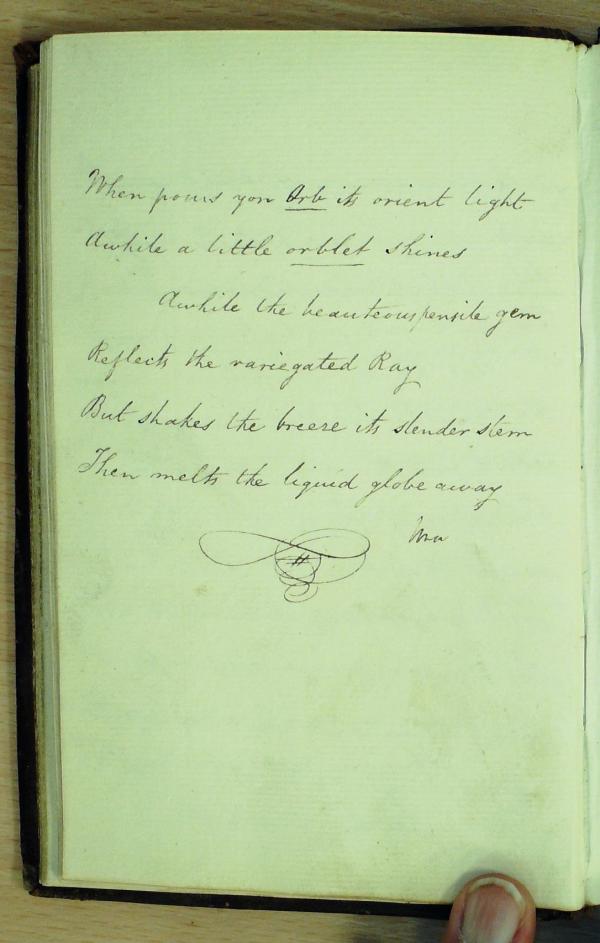 When pours yon Orb its orient light
Awhile a little orblet shines
Awhile the beauteous pensile gem
Reflects the variegated Ray
But shakes the breeze its slender stem
Then melts the liquid globe away